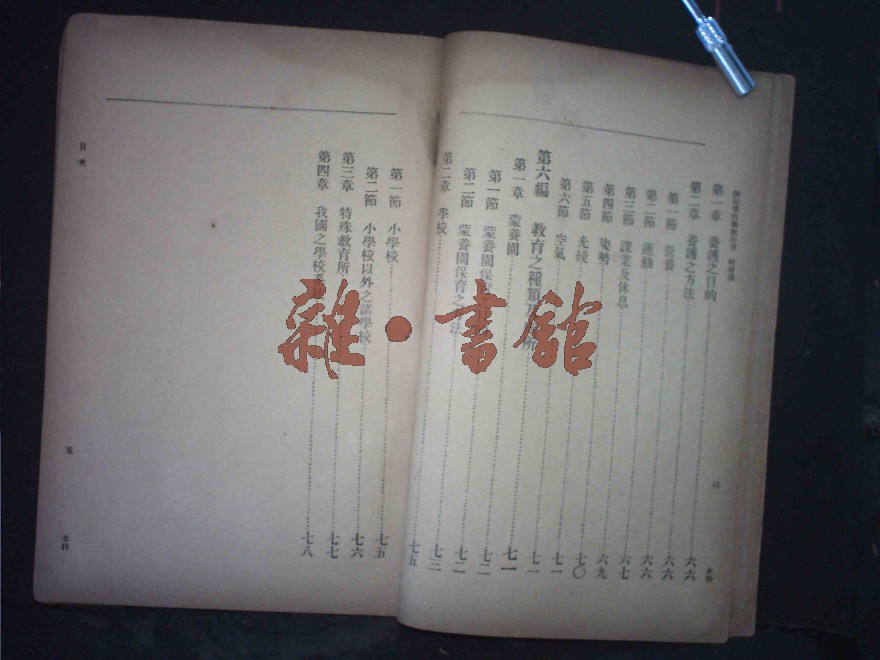 第一章 養護之目的 六六
第二章 養護之方法 六六
第一節 營養 六六
第二節 運動 六六
第三節 課業及休息 六七
第四節 姿勢 六九
第五節 光綫 七〇
第六節 空氣 七一
第六編 教育之種類 所 七一
第一章 蒙養園 七一
第一節 蒙養園保育之 七二
第二節 蒙養園保育之 法 七二
第二章 學校 七三
四
本科
目次
第一節 小學校 七五
第二節 小學校以外之諸學校 七六
第三章 特殊教育所 七七
第四章 我國之學校系 七八
五
本科
雜·書館